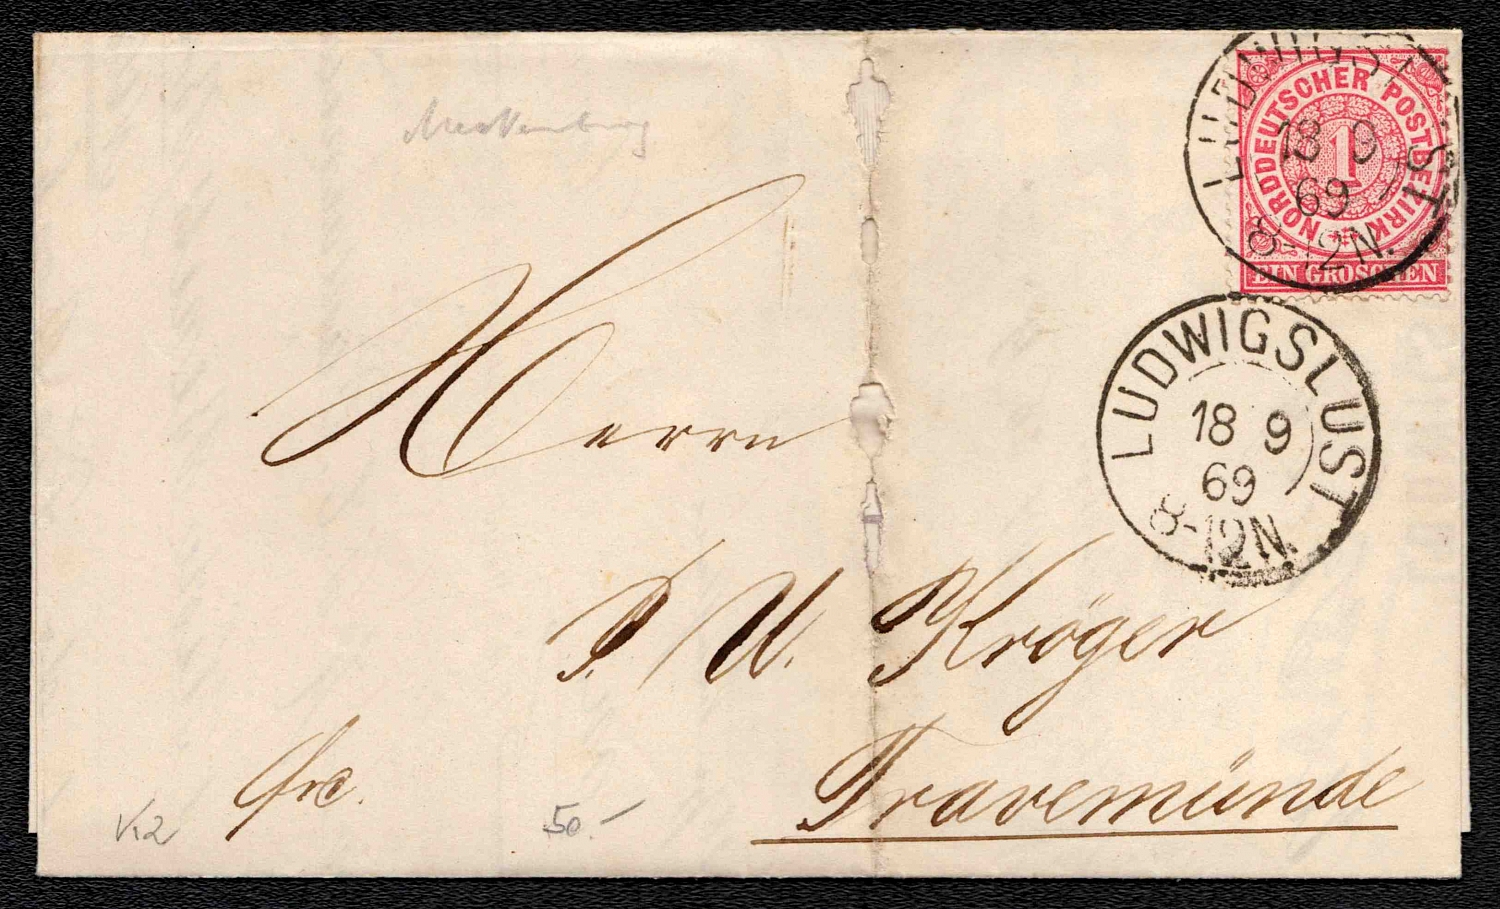 Mecklenburg
NORDDEUTSCHER POSTBEZIRK
1
EIN GROSCHEN
LUDWIGSLUST
18 9
69
8-12N.
LUDWIGSLUST
18 9
69
8-12N.
Herrn
P. W. Kröger
Travemünde
frc.
K2
50.-